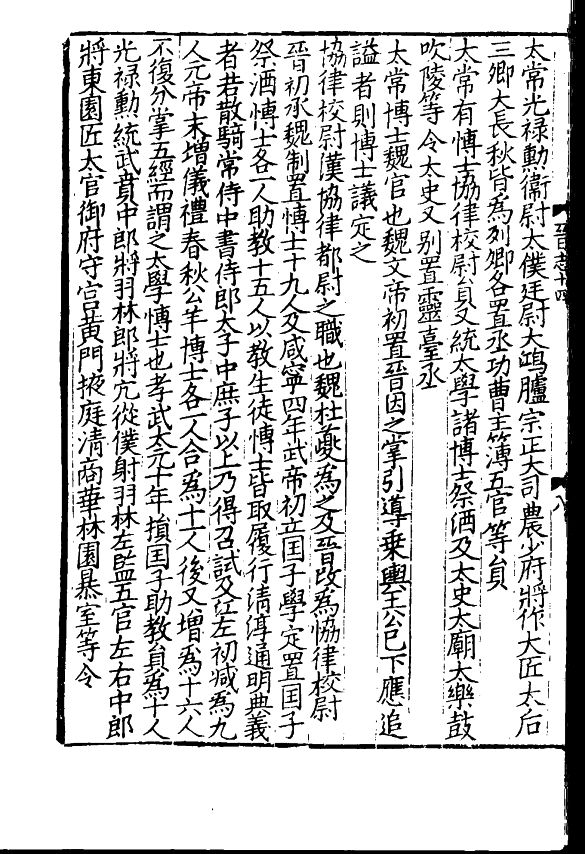 太常光禄勳衞尉太僕廷尉大鴻臚宗正大司農少府將作大匠太后
三卿大長秋皆爲列卿各置丞功曹主簿五官等貟
太常有愽士協律校尉貟又統太學諸博士祭酒及太史太廟太樂鼓
吹陵等令太史又别置靈臺丞
太常博士魏官也魏文帝初置晉因之掌引導乘輿王公已下應追
謚者則博士議定之
協律校尉漢協律都尉之職也魏杜夔爲之及晉改爲協律校尉
晉初承魏制置愽士十九人及咸寧四年武帝初立国子學定置国子
祭酒愽士各一人助教十五人以教生徒愽士皆取履行清淳通明典義
者若散騎常侍中書侍郎太子中庶子以上乃得召試及江左初减爲九
人元帝末增儀禮春秋公羊博士各一人合爲十一人後又增爲十六人
不復分掌五經而謂之太學愽士也孝武太元十年損国子助教貟爲十人
光禄勳統武賁中郎將羽林郎將冗從僕射羽林左監五官左右中郎
將東園匠太官御府守宫黄門掖庭清商華林園暴室等令
晉志十四
八